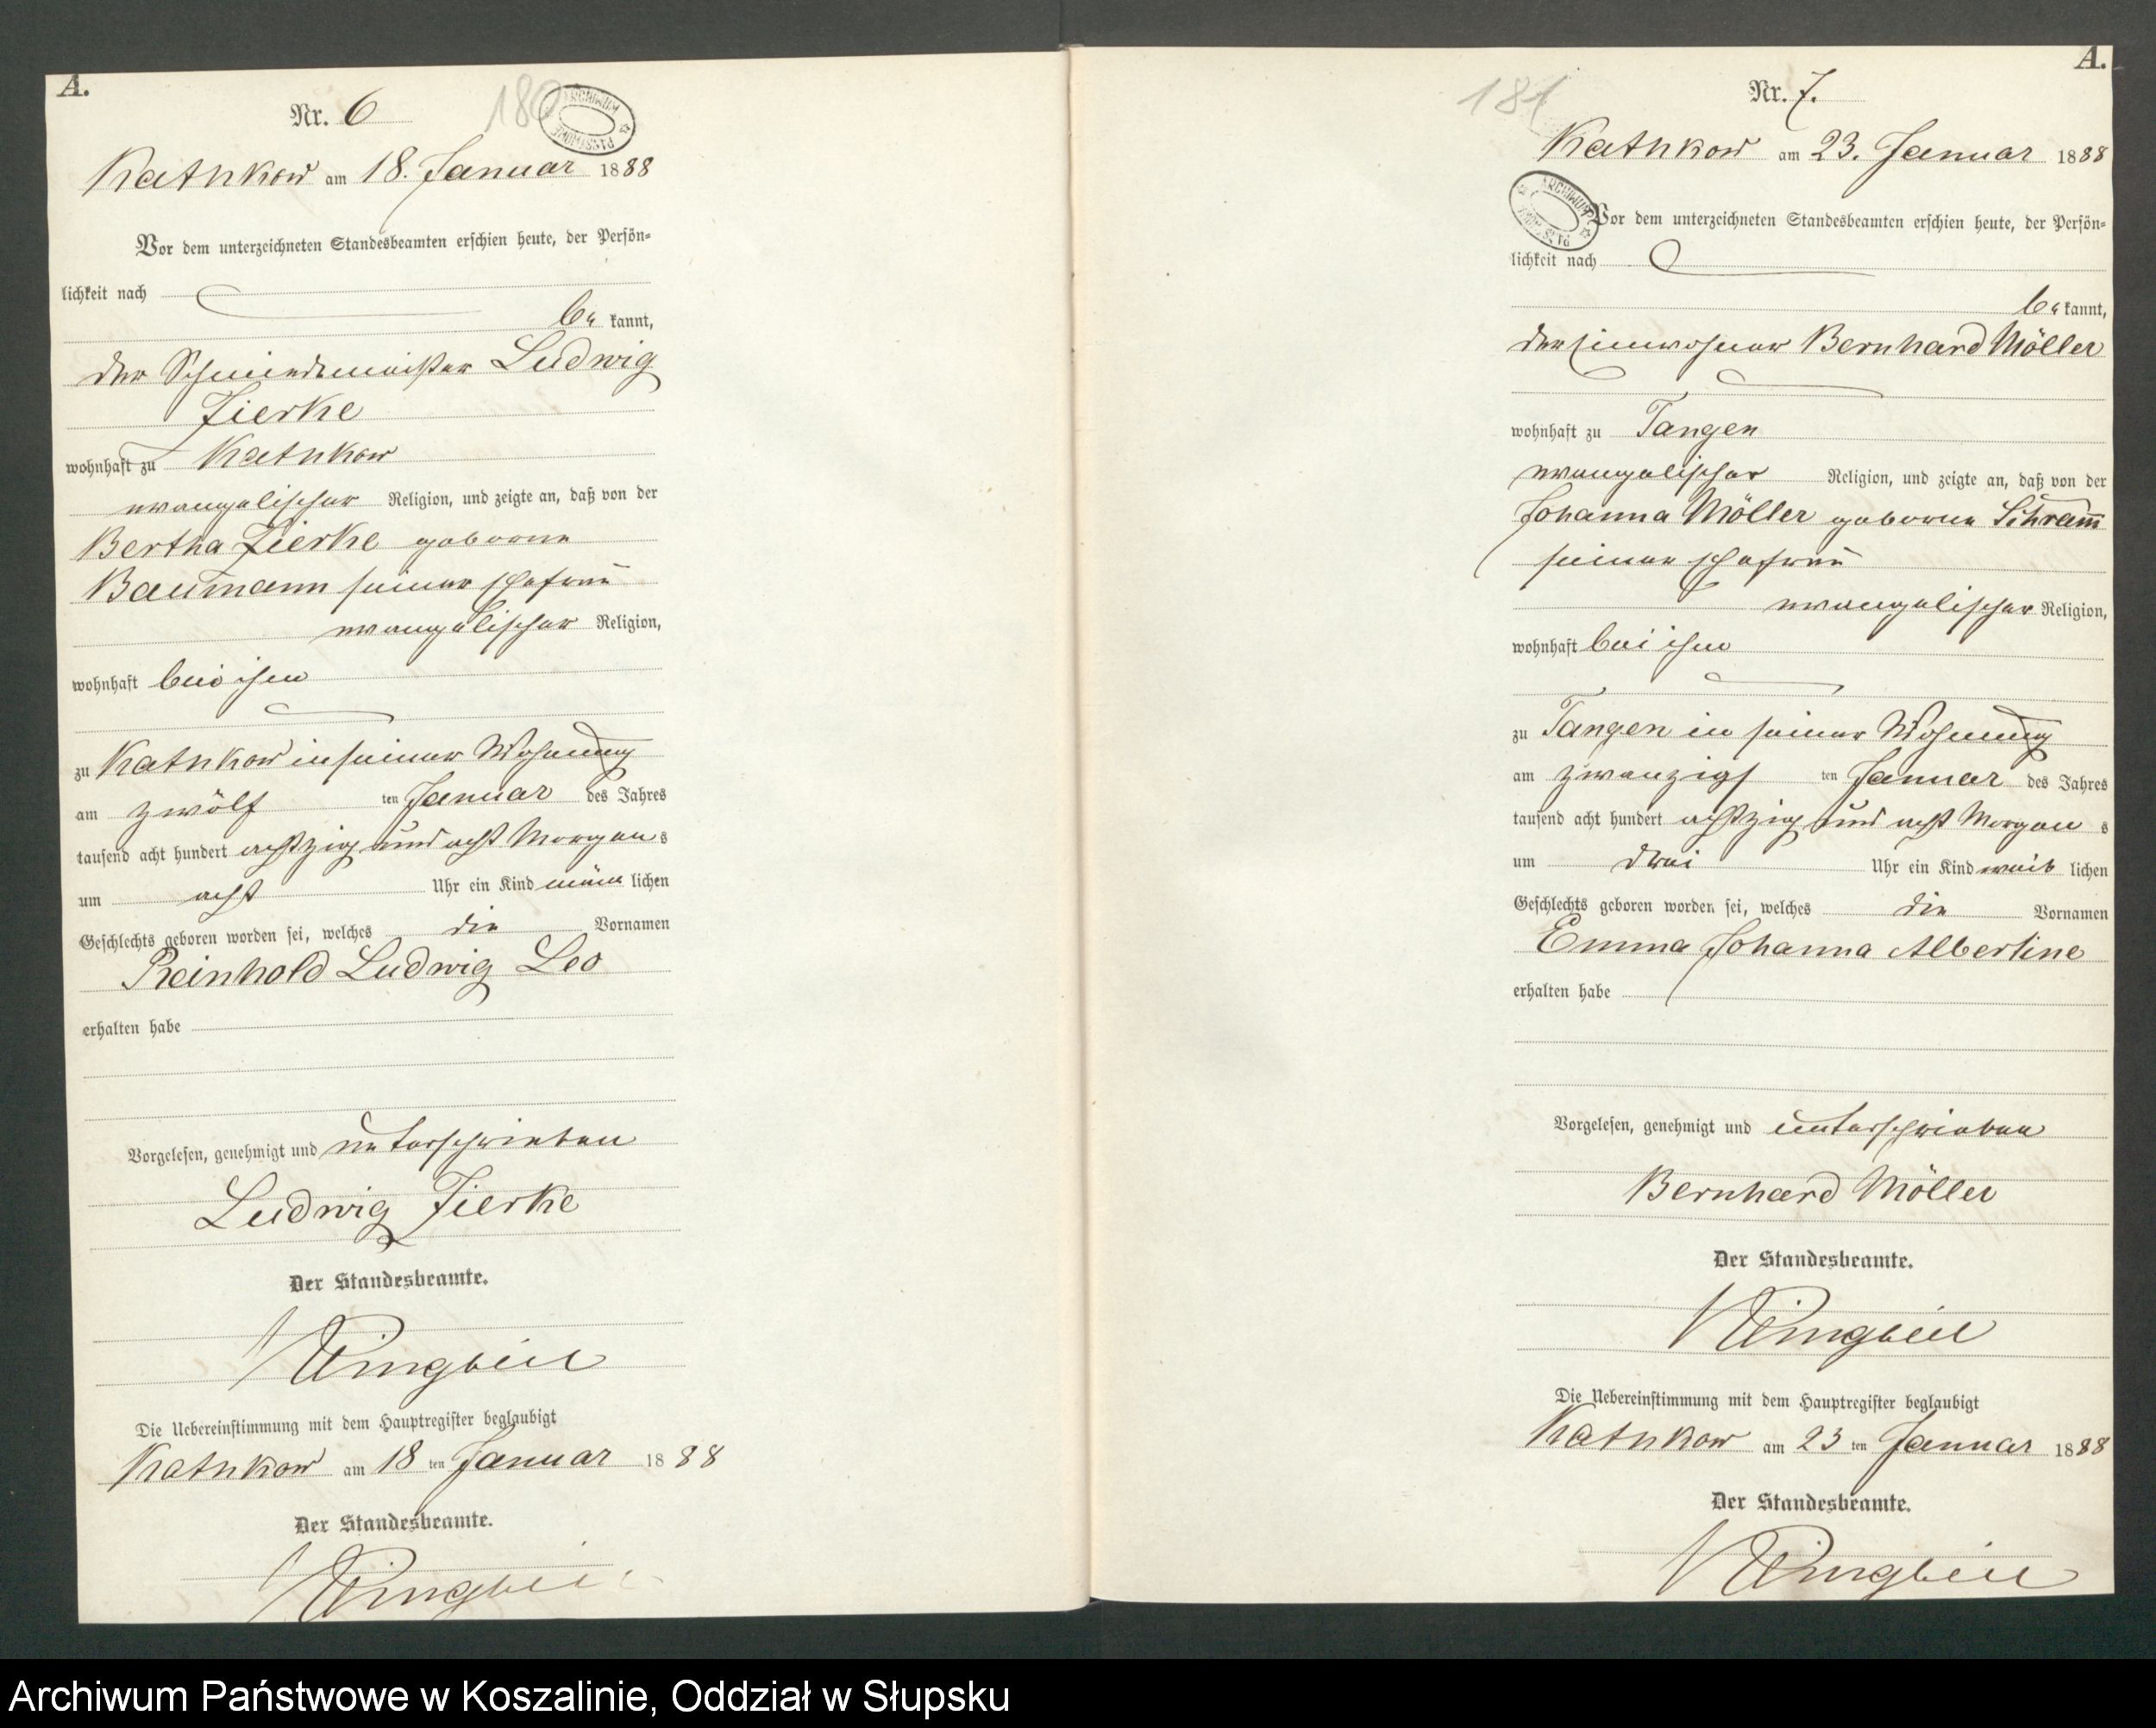 A.
Nr. 6
180
ARCHIWUM PAŃSTWOWE
Kathkow am 18. Januar 1888
Vor dem unterzeichneten Standesbeamten erschien heute, der Persön-
lichkeit nach
be kannt,
der Schmiedemeister Ludwig
Zierke
wohnhaft zu Kathkow
evangelischer Religion, und zeigte an, daß von der
Bertha Zierke geborne
Baumann seiner Ehefrau
evangelischer Religion,
wohnhaft bei ihm
zu Kathkow in seiner Wohnung
am zwölf ten Januar des Jahres
tausend acht hundert achtzig und acht Morgens
um acht Uhr ein Kind männ lichen
Geschlechts geboren worden sei, welches die Vornamen
Reinhold Ludwig Leo
erhalten habe
Vorgelesen, genehmigt und unterschrieben
Ludwig Zierke
Der Standesbeamte.
Die Uebereinstimmung mit dem Hauptregister beglaubigt
Kathkow am 18 ten Januar 1888
Der Standesbeamte.
A.
Nr. 7.
181
Kathkow am 23. Januar 1888
ARCHIWUM PAŃSTWOWE
Vor dem unterzeichneten Standesbeamten erschien heute, der Persön-
lichkeit nach
be kannt,
der Einwohner Bernhard Möller
wohnhaft zu Tangen
evangelischer Religion, und zeigte an, daß von der
Johanna Möller geborne Schramm
seiner Ehefrau
evangelischer Religion,
wohnhaft bei ihm
zu Tangen in seiner Wohnung
am zwanzigs ten Januar des Jahres
tausend acht hundert achtzig und acht Morgens
um drei Uhr ein Kind weib lichen
Geschlechts geboren worden sei, welches die Vornamen
Emma Johanna Albertine
erhalten habe
Vorgelesen, genehmigt und unterschrieben
Bernhard Möller
Der Standesbeamte.
Die Uebereinstimmung mit dem Hauptregister beglaubigt
Kathkow am 23 ten Januar 1888
Der Standesbeamte.
Archiwum Państwowe w Koszalinie, Oddział w Słupsku